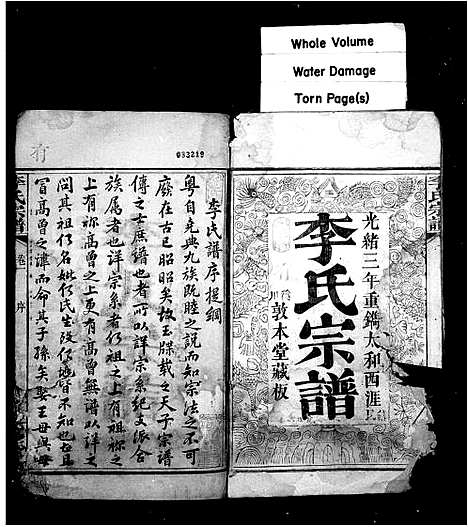 Whole Volume
Water Damage
Torn Page(s)
光緒三年重鐫太和西涯上
李氏宗譜
敦本堂藏板
李氏宗譜
083219
李氏譜序提綱
粵自堯典九族既睦之說而知宗法之不可
廢在古已昭昭矣故玉牒載之天子宗譜
傳之士庶譜也者所以詳宗系紀支派合
族属者也詳宗系者何祖之上有祖祢之
上有祢高曾之上更有高曾無譜以詳之
問其祖何名妣何氏生没何地皆不知也且
冒高曾之諱而命其子孫矣娶王母與母
李氏宗譜
卷一
序